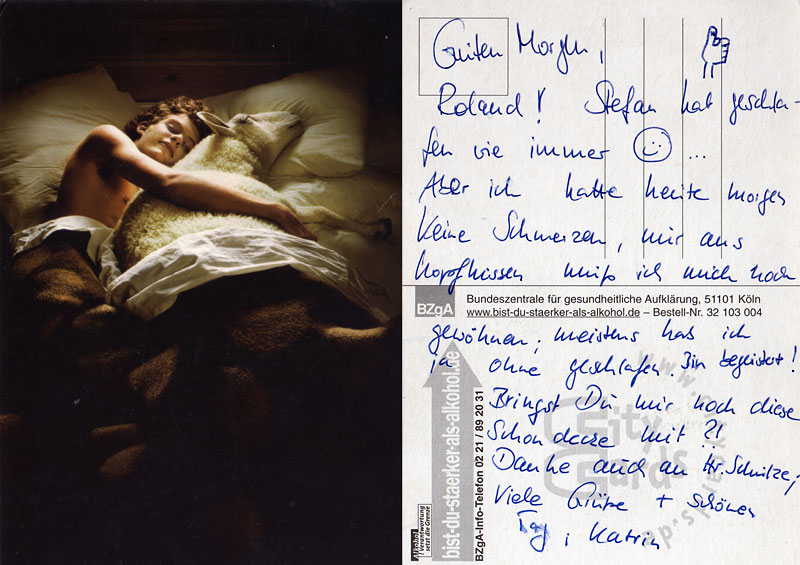 Guten Morgen,
Roland! Stefan hat geschla-
fen wie immer ☺ ...
Aber ich hatte heute morgen
keine Schmerzen, nur ans
Kopfkissen muß ich mich noch
BZgA
Bundeszentrale für gesundheitliche Aufklärung, 51101 Köln
www.bist-du-staerker-als-alkohol.de – Bestell-Nr. 32 103 004
gewöhnen, meistens hab ich
ja ohne geschlafen. Bin begeistert!
Bringst Du mir noch diese
Schondecke mit?!
Danke auch an Hr. Schulze,
Viele Grüße + schönen
Tag, Katrin
bist-du-staerker-als-alkohol.de
BZgA-Info-Telefon 02 21 / 89 20 31
Alkohol
Verantwortung
setzt die Grenze
City
Cards